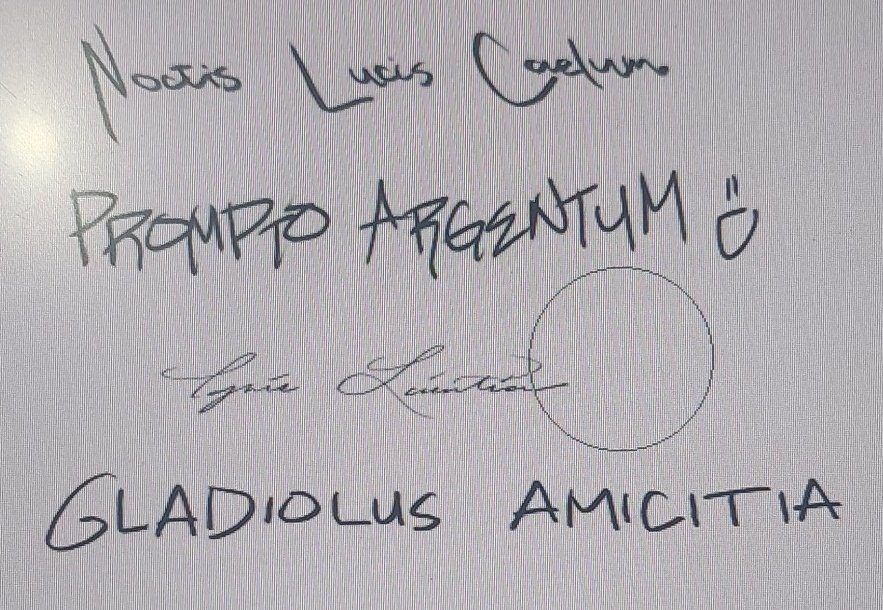 Noctis Lucis Caelum
PROMPTO ARGENTUM
Ignis Scientia
GLADIOLUS AMICITIA